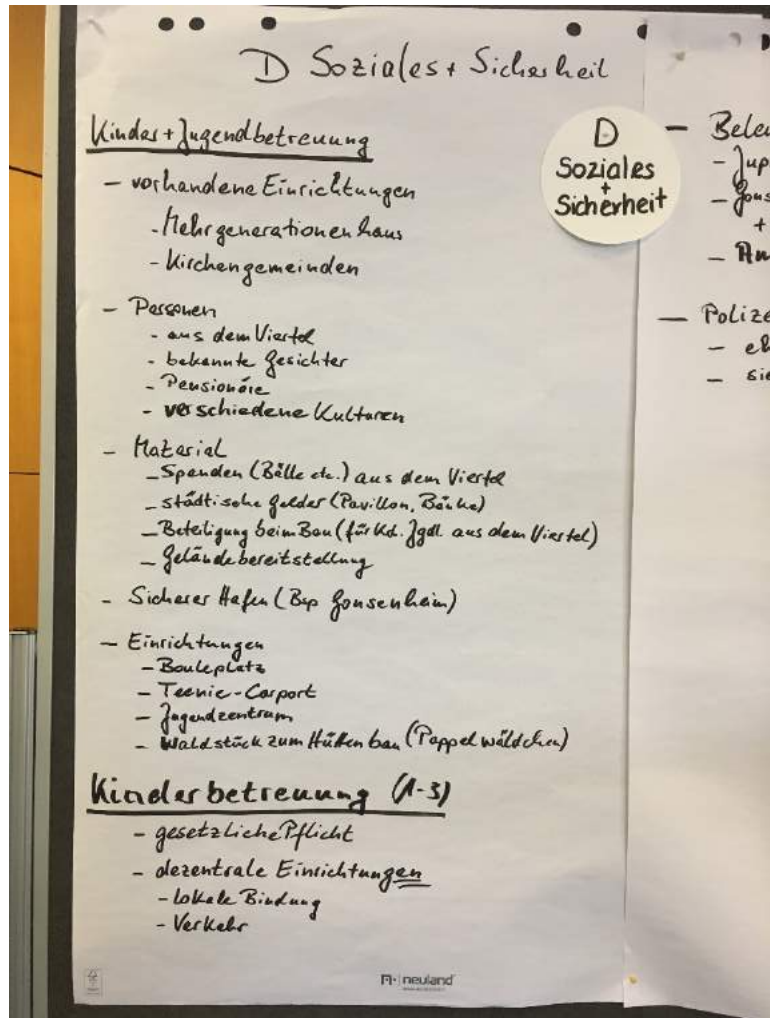 D Soziales + Sicherheit
Kinder + Jugendbetreuung
- vorhandene Einrichtungen
- Mehrgenerationenhaus
- Kirchengemeinden
- Personen
- aus dem Viertel
- bekannte Gesichter
- Pensionäre
- verschiedene Kulturen
- Material
- Spenden (Bälle etc.) aus dem Viertel
- städtische Gelder (Pavillon, Bänke)
- Beteiligung beim Bau (für Kd. Jgdl. aus dem Viertel)
- Geländebereitstellung
- Sicherer Hafen (Bsp Gonsenheim)
- Einrichtungen
- Bouleplatz
- Teenie-Carport
- Jugendzentrum
- Waldstück zum Hüttenbau (Pappelwäldchen)
Kinderbetreuung (1-3)
- gesetzliche Pflicht
- dezentrale Einrichtungen
- lokale Bindung
- Verkehr
neuland
D
Soziales
+
Sicherheit
- Bele
- Jup
- Gons
+
-
- Polize
- eh
- sie